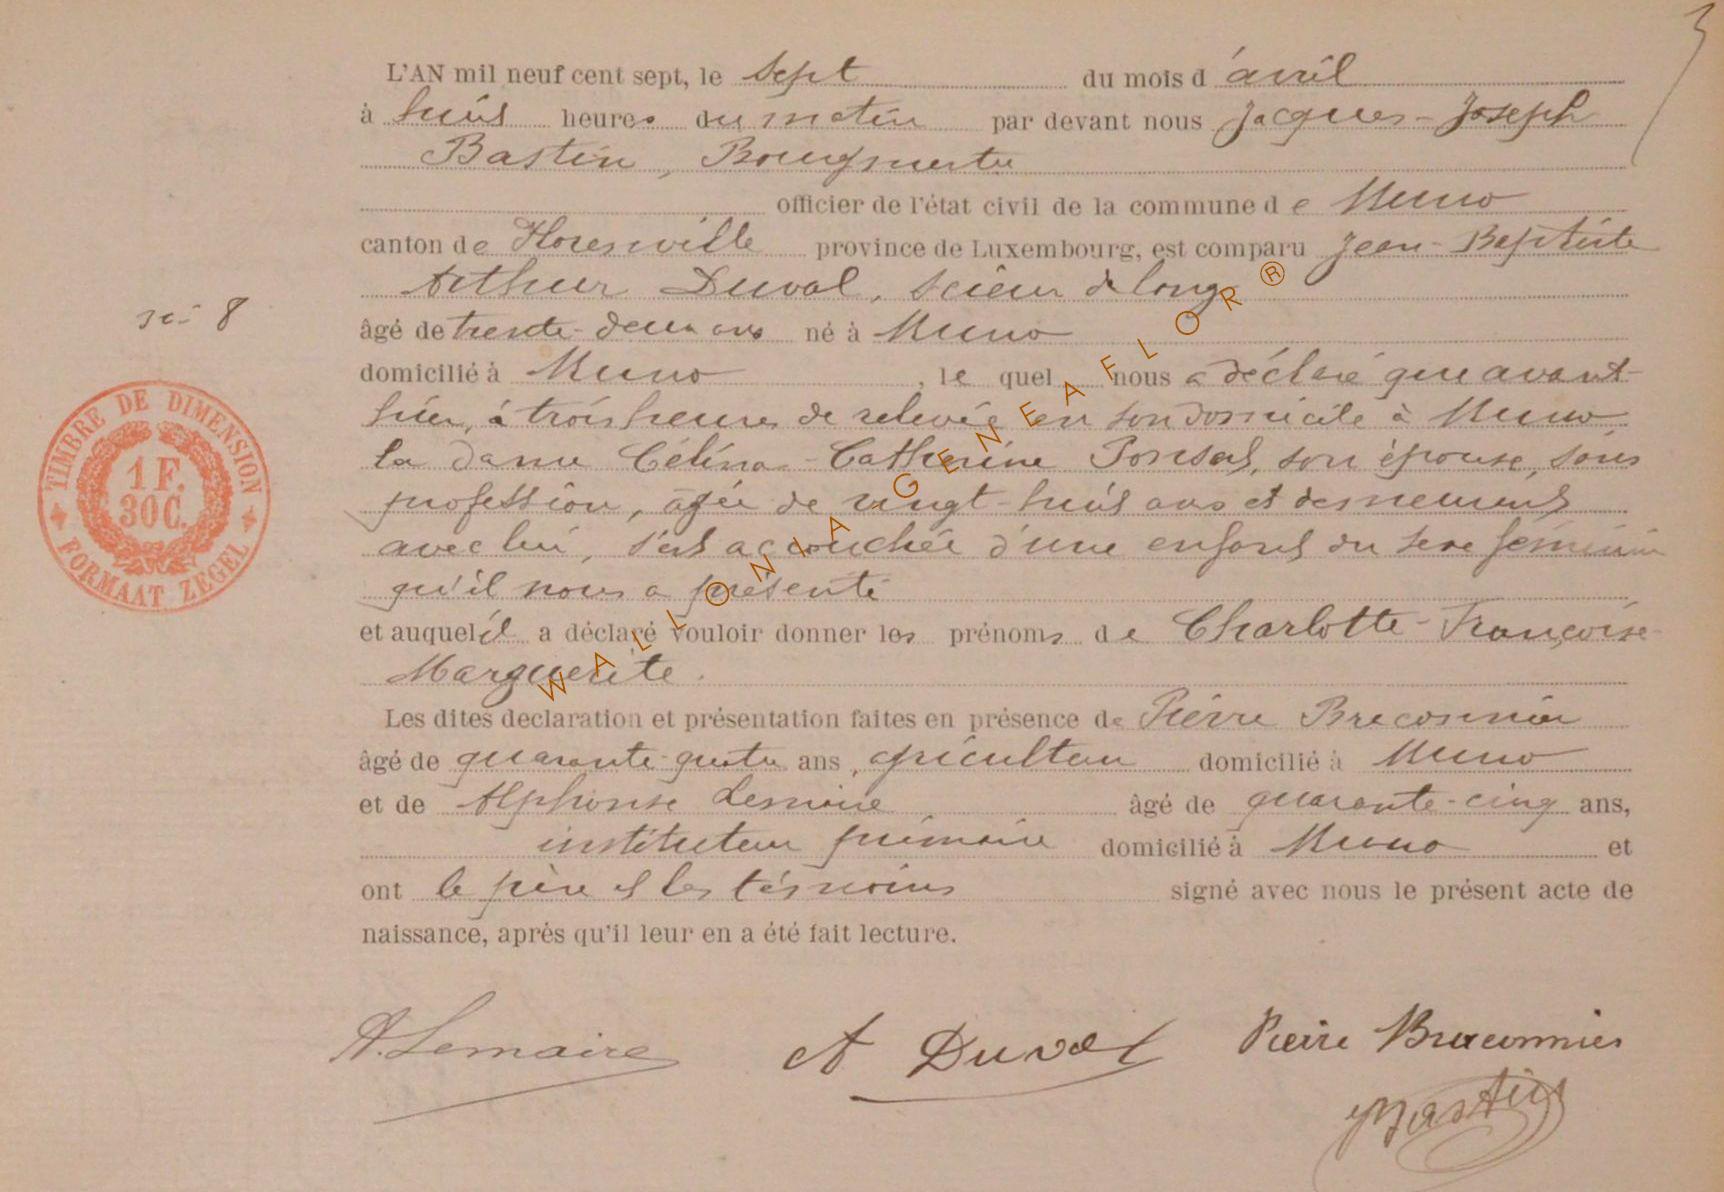 L'AN mil neuf cent sept, le sept du mois d'avril
à huit heures du matin par devant nous Jacques-Joseph
Bastin, Bourgmestre
officier de l'état civil de la commune de Muno
canton de Florenville province de Luxembourg, est comparu Jean-Baptiste
Arthur Duval, scieur de long
âgé de trente-deux ans né à Muno
no 8
domicilié à Muno, le quel nous a déclaré que avant-
hier, à trois heures de relevée en son domicile à Muno,
la dame Célina-Catherine Ponsard, son épouse, sans
profession, agée de vingt-huit ans et demeurant
avec lui, s'est accouchée d'une enfant du sexe féminin
qu'il nous a présenté
et auquel il a déclaré vouloir donner les prénoms de Charlotte-Françoise-
Marguerite.
Les dites declaration et présentation faites en présence de Pierre Braconnier
âgé de quarante-quatre ans, apiculteur domicilié à Muno
et de Alphonse Lemaire âgé de quarante-cinq ans,
instituteur primaire domicilié à Muno et
ont le père et les témoins signé avec nous le présent acte de
naissance, après qu'il leur en a été fait lecture.
A. Lemaire A Duval Pierre Braconnier
Bastin
TIMBRE DE DIMENSION
1 F.
30C.
FORMAAT ZEGEL
WALLONIA-GENEAFLOR®